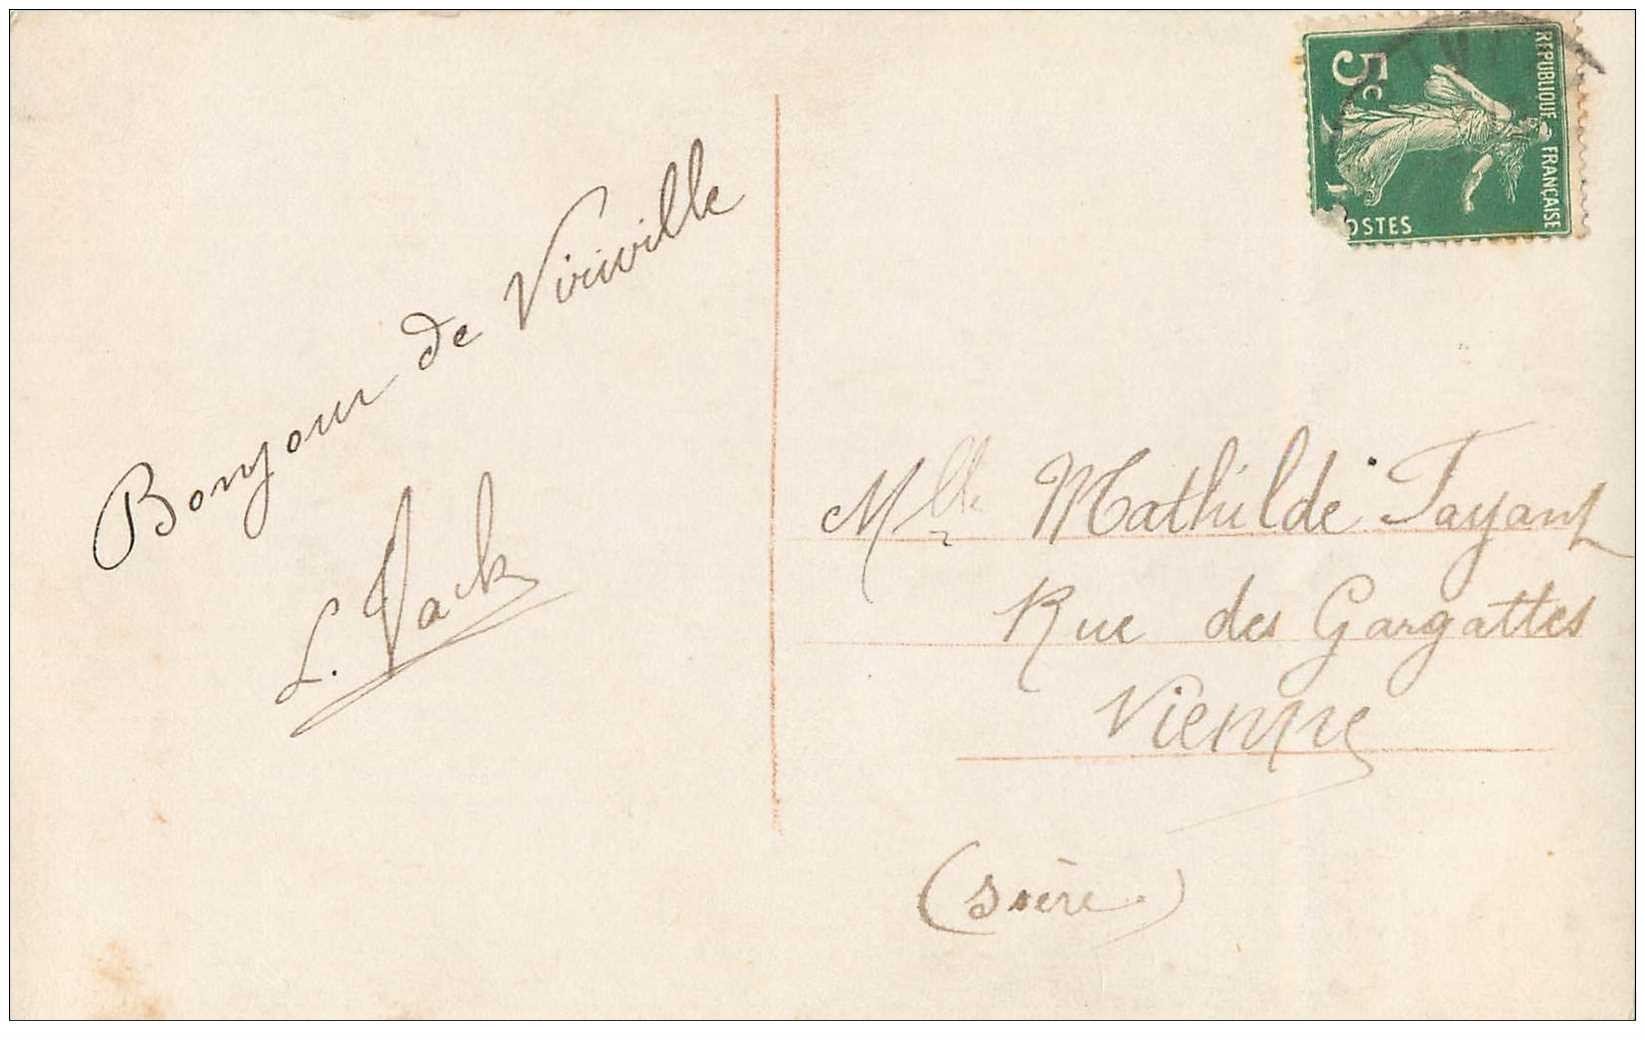 Bonjour de Viriville
L. Vack
REPUBLIQUE FRANÇAISE
5c
OSTES
Mlle Mathilde Fayant
Rue des Gargattes
Vienne
(Isère)